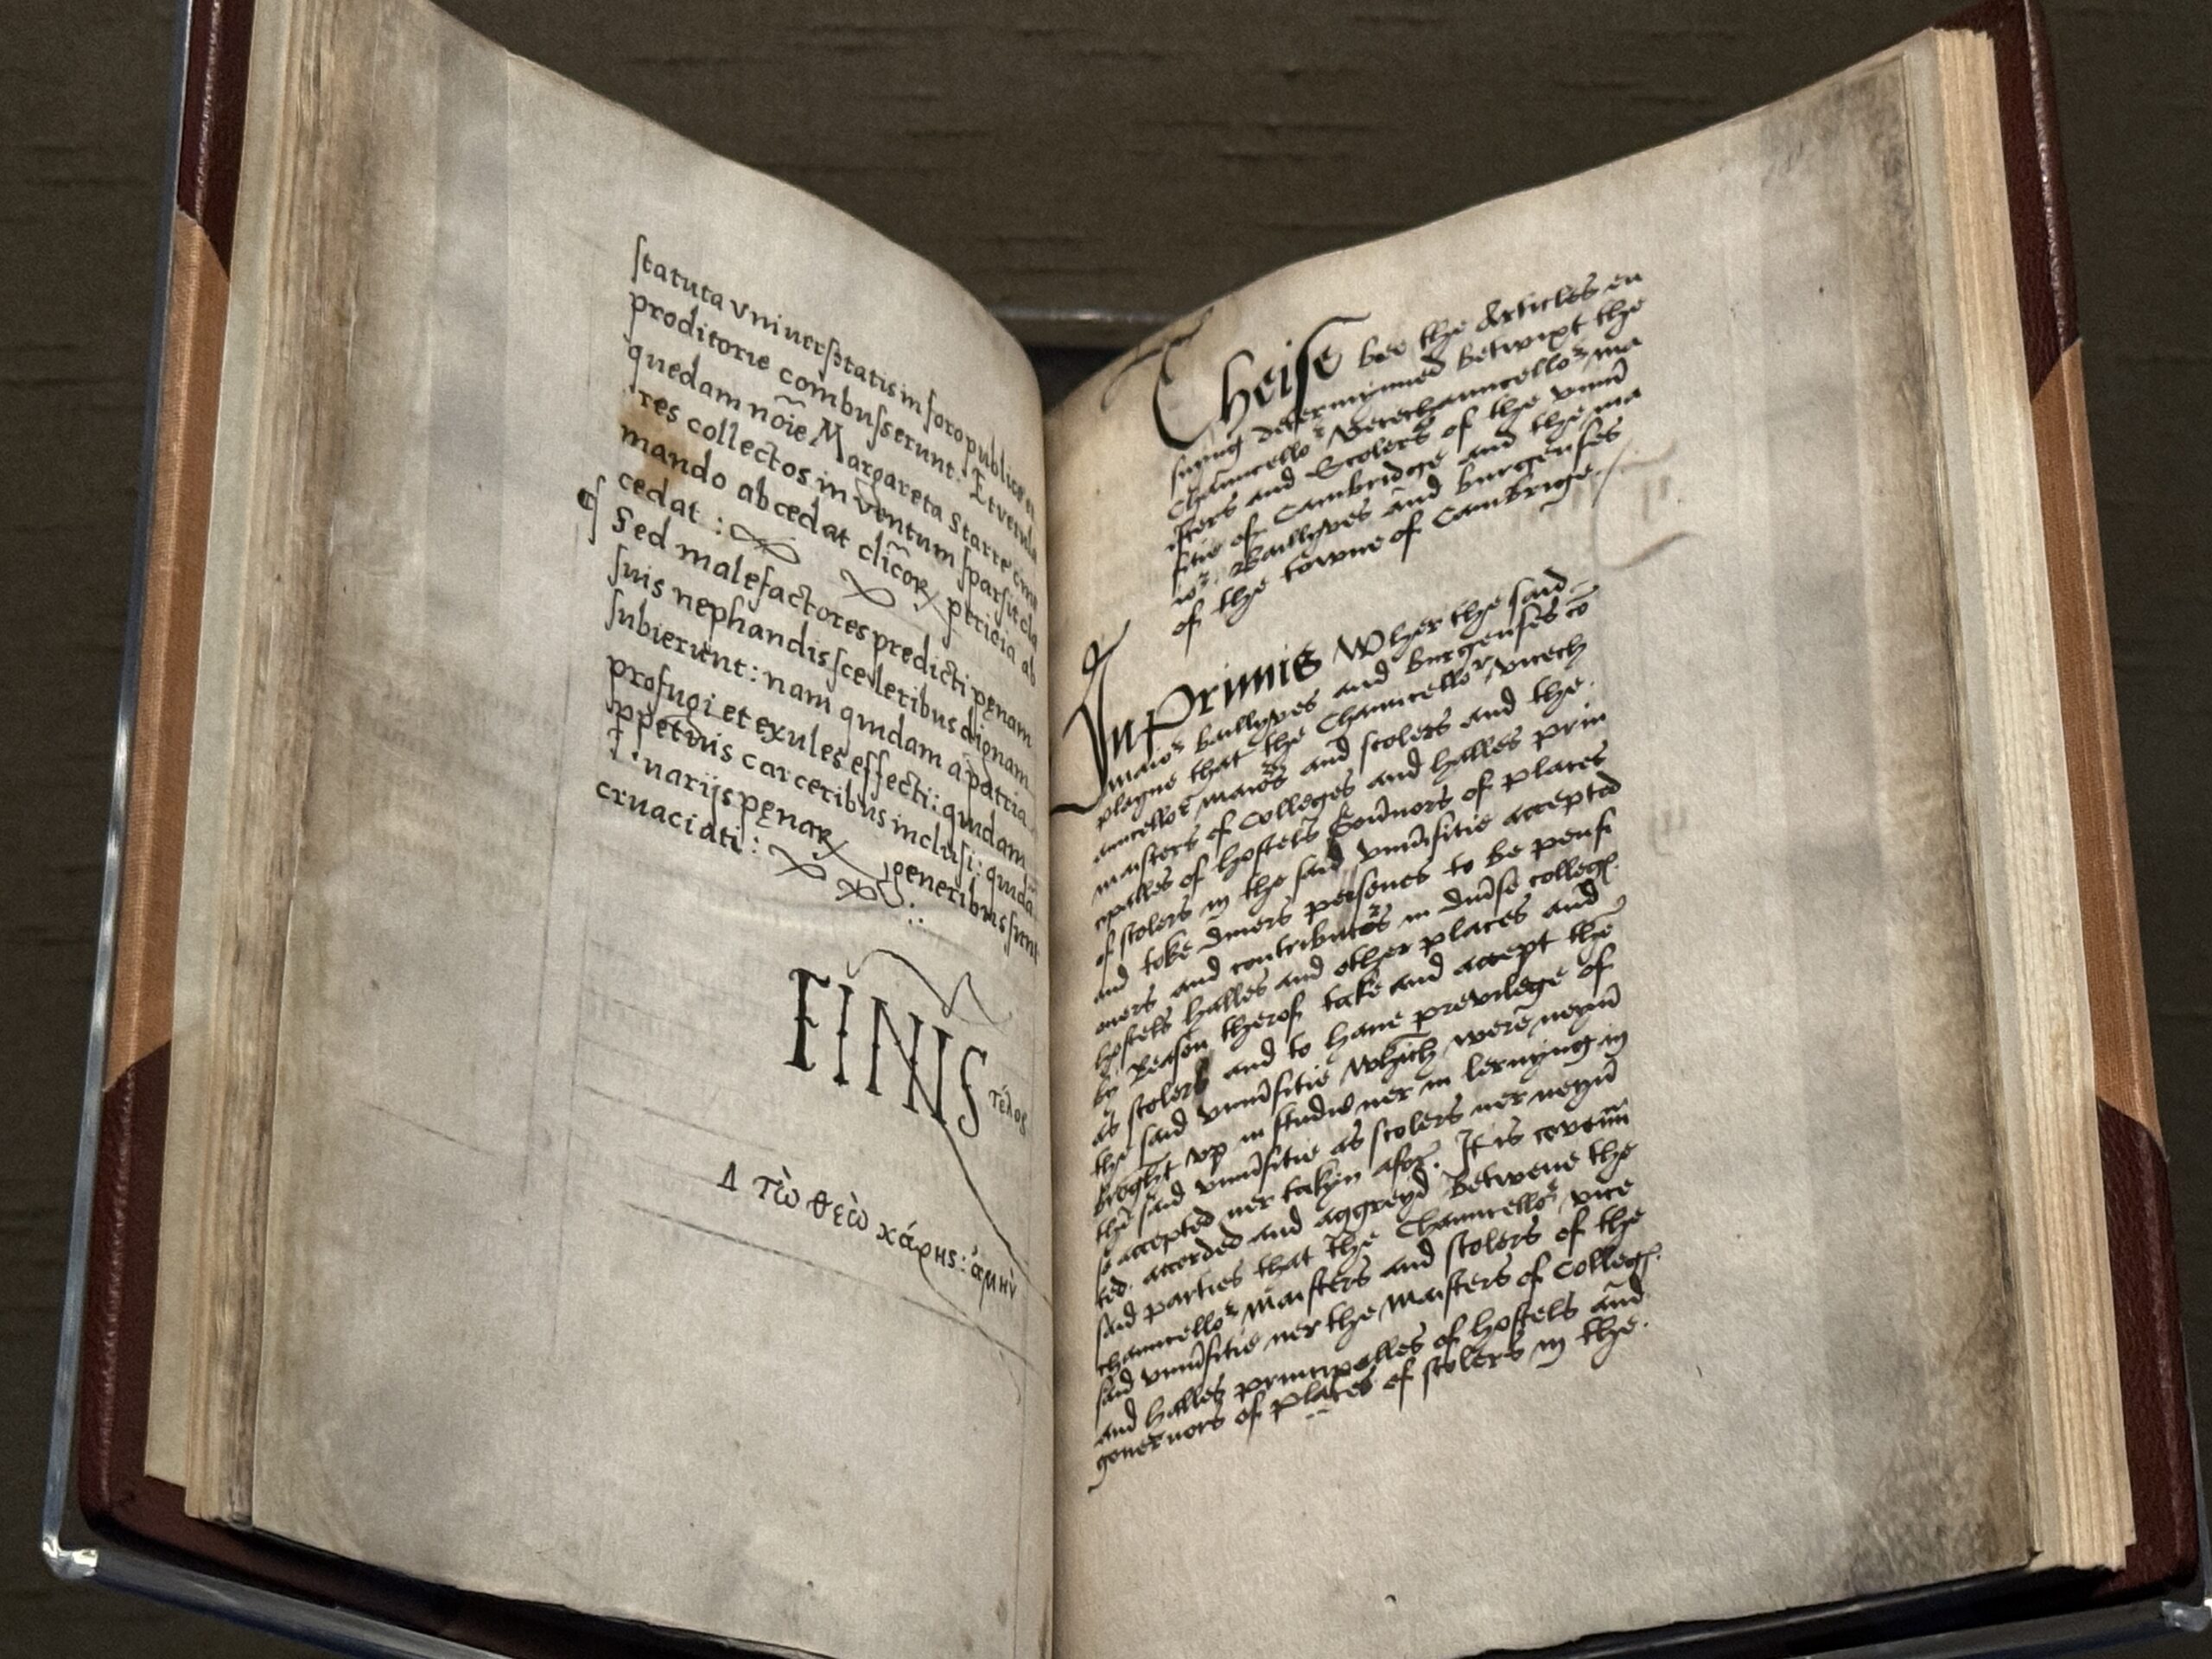 ſtatuta vniuerſitatis in foro publice
proditorie combuſserunt. Et vetula
quedam nõie Margareta Starre cine
res collectos in ventum ſparſit cla
mando abcedat clĩcoꝝ pericia ab
cedat :
¶ Sed malefactores predicti pęnam
ſuis nephandis ſceleribus dignam
ſubierunt : nam quidam a patria
profugi et exules effecti : quidam
ꝑpetuis carceribus incluſi : quidã
narijs pęnaꝝ generibus ſunt
cruaciati :
FINIS τέλος
Δ τὼ θεὼ χάρης : ἀμὴν
Theiſe bee the Articles en
suyng determinned betwixt the
Chauncelloʳ Vicechauncelloʳ ma
iſters and Scolers of the vniũ
ſitie of Cambridge and the ma
ioʳ Baillyves and burgenſes
of the towne of Cambrige.
In Primis Wher the said
maioʳ baillyves and burgenſes cõ
playne that the Chauncelloʳ vicech
auncelloʳ maioʳs and scolers and the
maiſters of Colleges and halles prin
cipalles of hoſtels Goũnors of places
of scolers in the said vniũſitie accepted
and toke diuers persones to be penſi
oners and contributoʳs in diũſe colleg
hoſtels halles and other places and
by Reaſon therof take and accept the
as scolers and to haue previlege of
the said vniũſitie which were neyũ
broght vp in studie ner in lernyng in
the said vniũſitie as scolers ner neyũ
so accepted ner takyn afoʳ. It is coveũ
ted accorded and aggreyd betwene the
said parties that the Chauncelloʳ vice
chauncelloʳ Maiſters and scolers of the
said vniũſitie ner the Maiſters of Colleg
and halles principalles of hoſtels and
gouernors of places of scolers in the